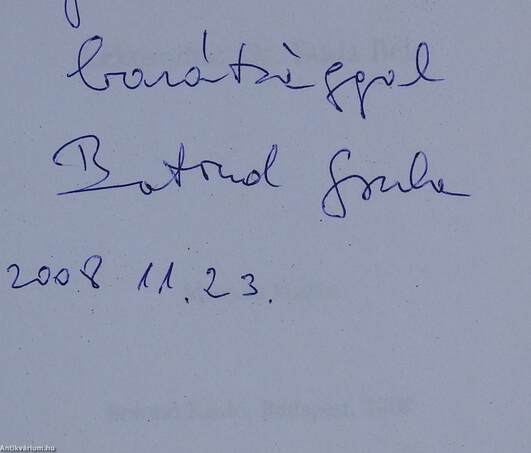 barátsággal
Botond Gyula
2008 11.23.
Antikvárium.hu